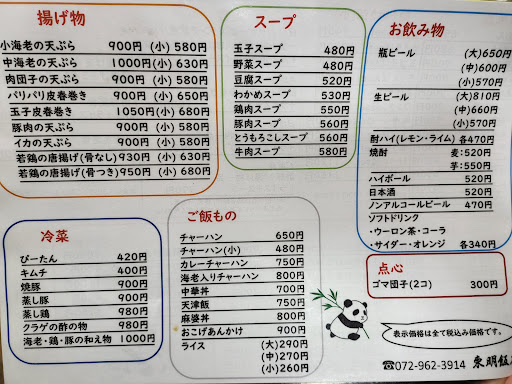 揚げ物
小海老の天ぷら 900円 (小) 580円
中海老の天ぷら 1000円 (小) 630円
肉団子の天ぷら 900円 (小) 580円
パリパリ皮春巻き 900円 (小) 650円
玉子皮春巻き 1050円 (小) 680円
豚肉の天ぷら 900円 (小) 580円
イカの天ぷら 900円 (小) 580円
若鶏の唐揚げ(骨なし) 930円 (小) 630円
若鶏の唐揚げ(骨つき) 950円 (小) 680円
スープ
玉子スープ 480円
野菜スープ 480円
豆腐スープ 520円
わかめスープ 530円
鶏肉スープ 550円
豚肉スープ 560円
とうもろこしスープ 560円
牛肉スープ 580円
お飲み物
瓶ビール (大)650円
(中)600円
(小)570円
生ビール (大)810円
(中)660円
(小)570円
酎ハイ(レモン・ライム) 各470円
焼酎 麦:520円
芋:550円
ハイボール 520円
日本酒 520円
ノンアルコールビール 470円
ソフトドリンク
・ウーロン茶・コーラ
・サイダー・オレンジ 各340円
冷菜
ぴーたん 420円
キムチ 400円
焼豚 900円
蒸し豚 900円
蒸し鶏 980円
クラゲの酢の物 980円
海老・鶏・豚の和え物 1000円
ご飯もの
チャーハン 650円
チャーハン(小) 480円
カレーチャーハン 750円
海老入りチャーハン 800円
中華丼 700円
天津飯 750円
麻婆丼 800円
おこげあんかけ 900円
ライス (大)290円
(中)270円
(小)260円
点心
ゴマ団子(2コ) 300円
表示価格は全て税込み価格です。
☎072-962-3914 東明飯